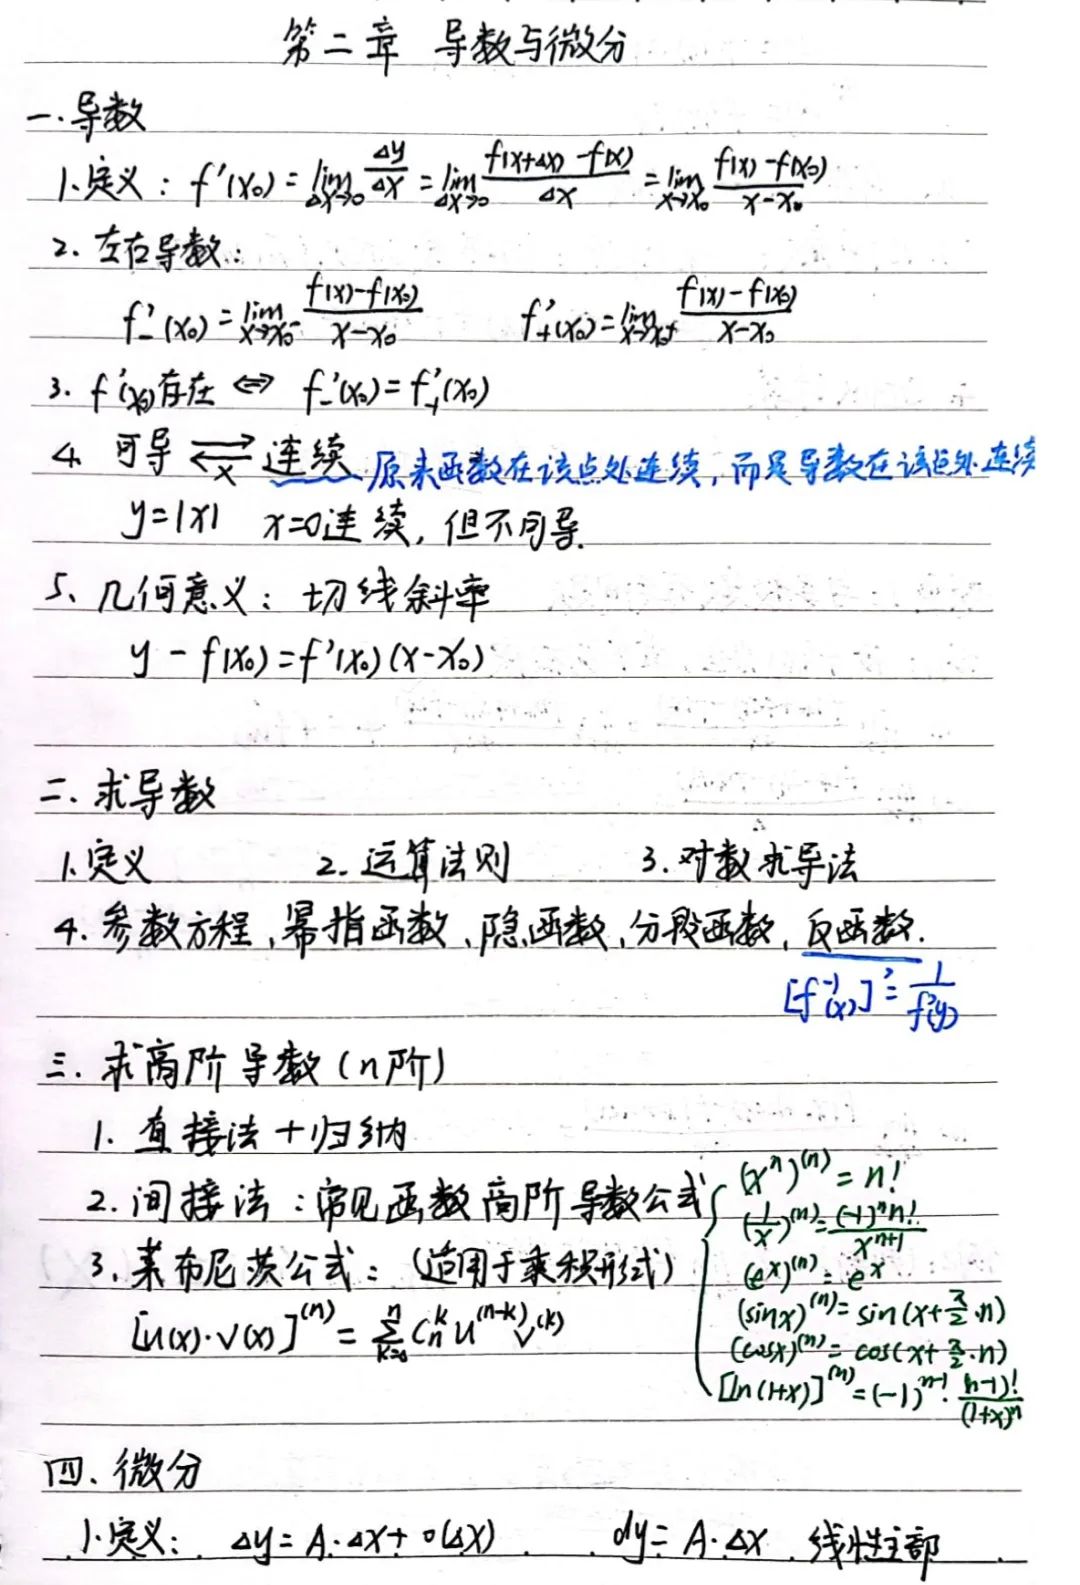 第二章 导数与微分
一.导数
1.定义: f'(x₀) = lim_{Δx→0} Δy/Δx = lim_{Δx→0} (f(x+Δx)-f(x))/Δx = lim_{x→x₀} (f(x)-f(x₀))/(x-x₀)
2. 左右导数:
f₋'(x₀) = lim_{x→x₀⁻} (f(x)-f(x₀))/(x-x₀)  f₊'(x₀) = lim_{x→x₀⁺} (f(x)-f(x₀))/(x-x₀)
3. f'(x₀)存在 ⇔ f₋'(x₀) = f₊'(x₀)
4. 可导 ⇄ 连续 原来函数在该点处连续,而是导数在该点处连续
x
y=|x| x=0连续, 但不可导.
5、几何意义: 切线斜率
y - f(x₀) = f'(x₀)(x-x₀)
二.求导数
1.定义 2. 运算法则 3. 对数求导法
4. 参数方程、幂指函数、隐函数、分段函数、反函数.
[f⁻¹(x)]' = 1/f'(y)
三.求高阶导数(n阶)
1. 直接法+归纳
2. 间接法:常见函数高阶导数公式
(xⁿ)⁽ⁿ⁾ = n!
(1/x)⁽ⁿ⁾ = (-1)ⁿn!/xⁿ⁺¹
(eˣ)⁽ⁿ⁾ = eˣ
(sinx)⁽ⁿ⁾ = sin(x+π/2·n)
(cosx)⁽ⁿ⁾ = cos(x+π/2·n)
[ln(1+x)]⁽ⁿ⁾ = (-1)ⁿ⁻¹·(n-1)!/(1+x)ⁿ
3. 莱布尼茨公式:(适用于乘积形式)
[u(x)·v(x)]⁽ⁿ⁾ = Σ_{k=0}^{n} Cₙᵏ u⁽ⁿ⁻ᵏ⁾v⁽ᵏ⁾
四.微分
1.定义: Δy = A·Δx + o(Δx) dy = A·Δx 线性主部